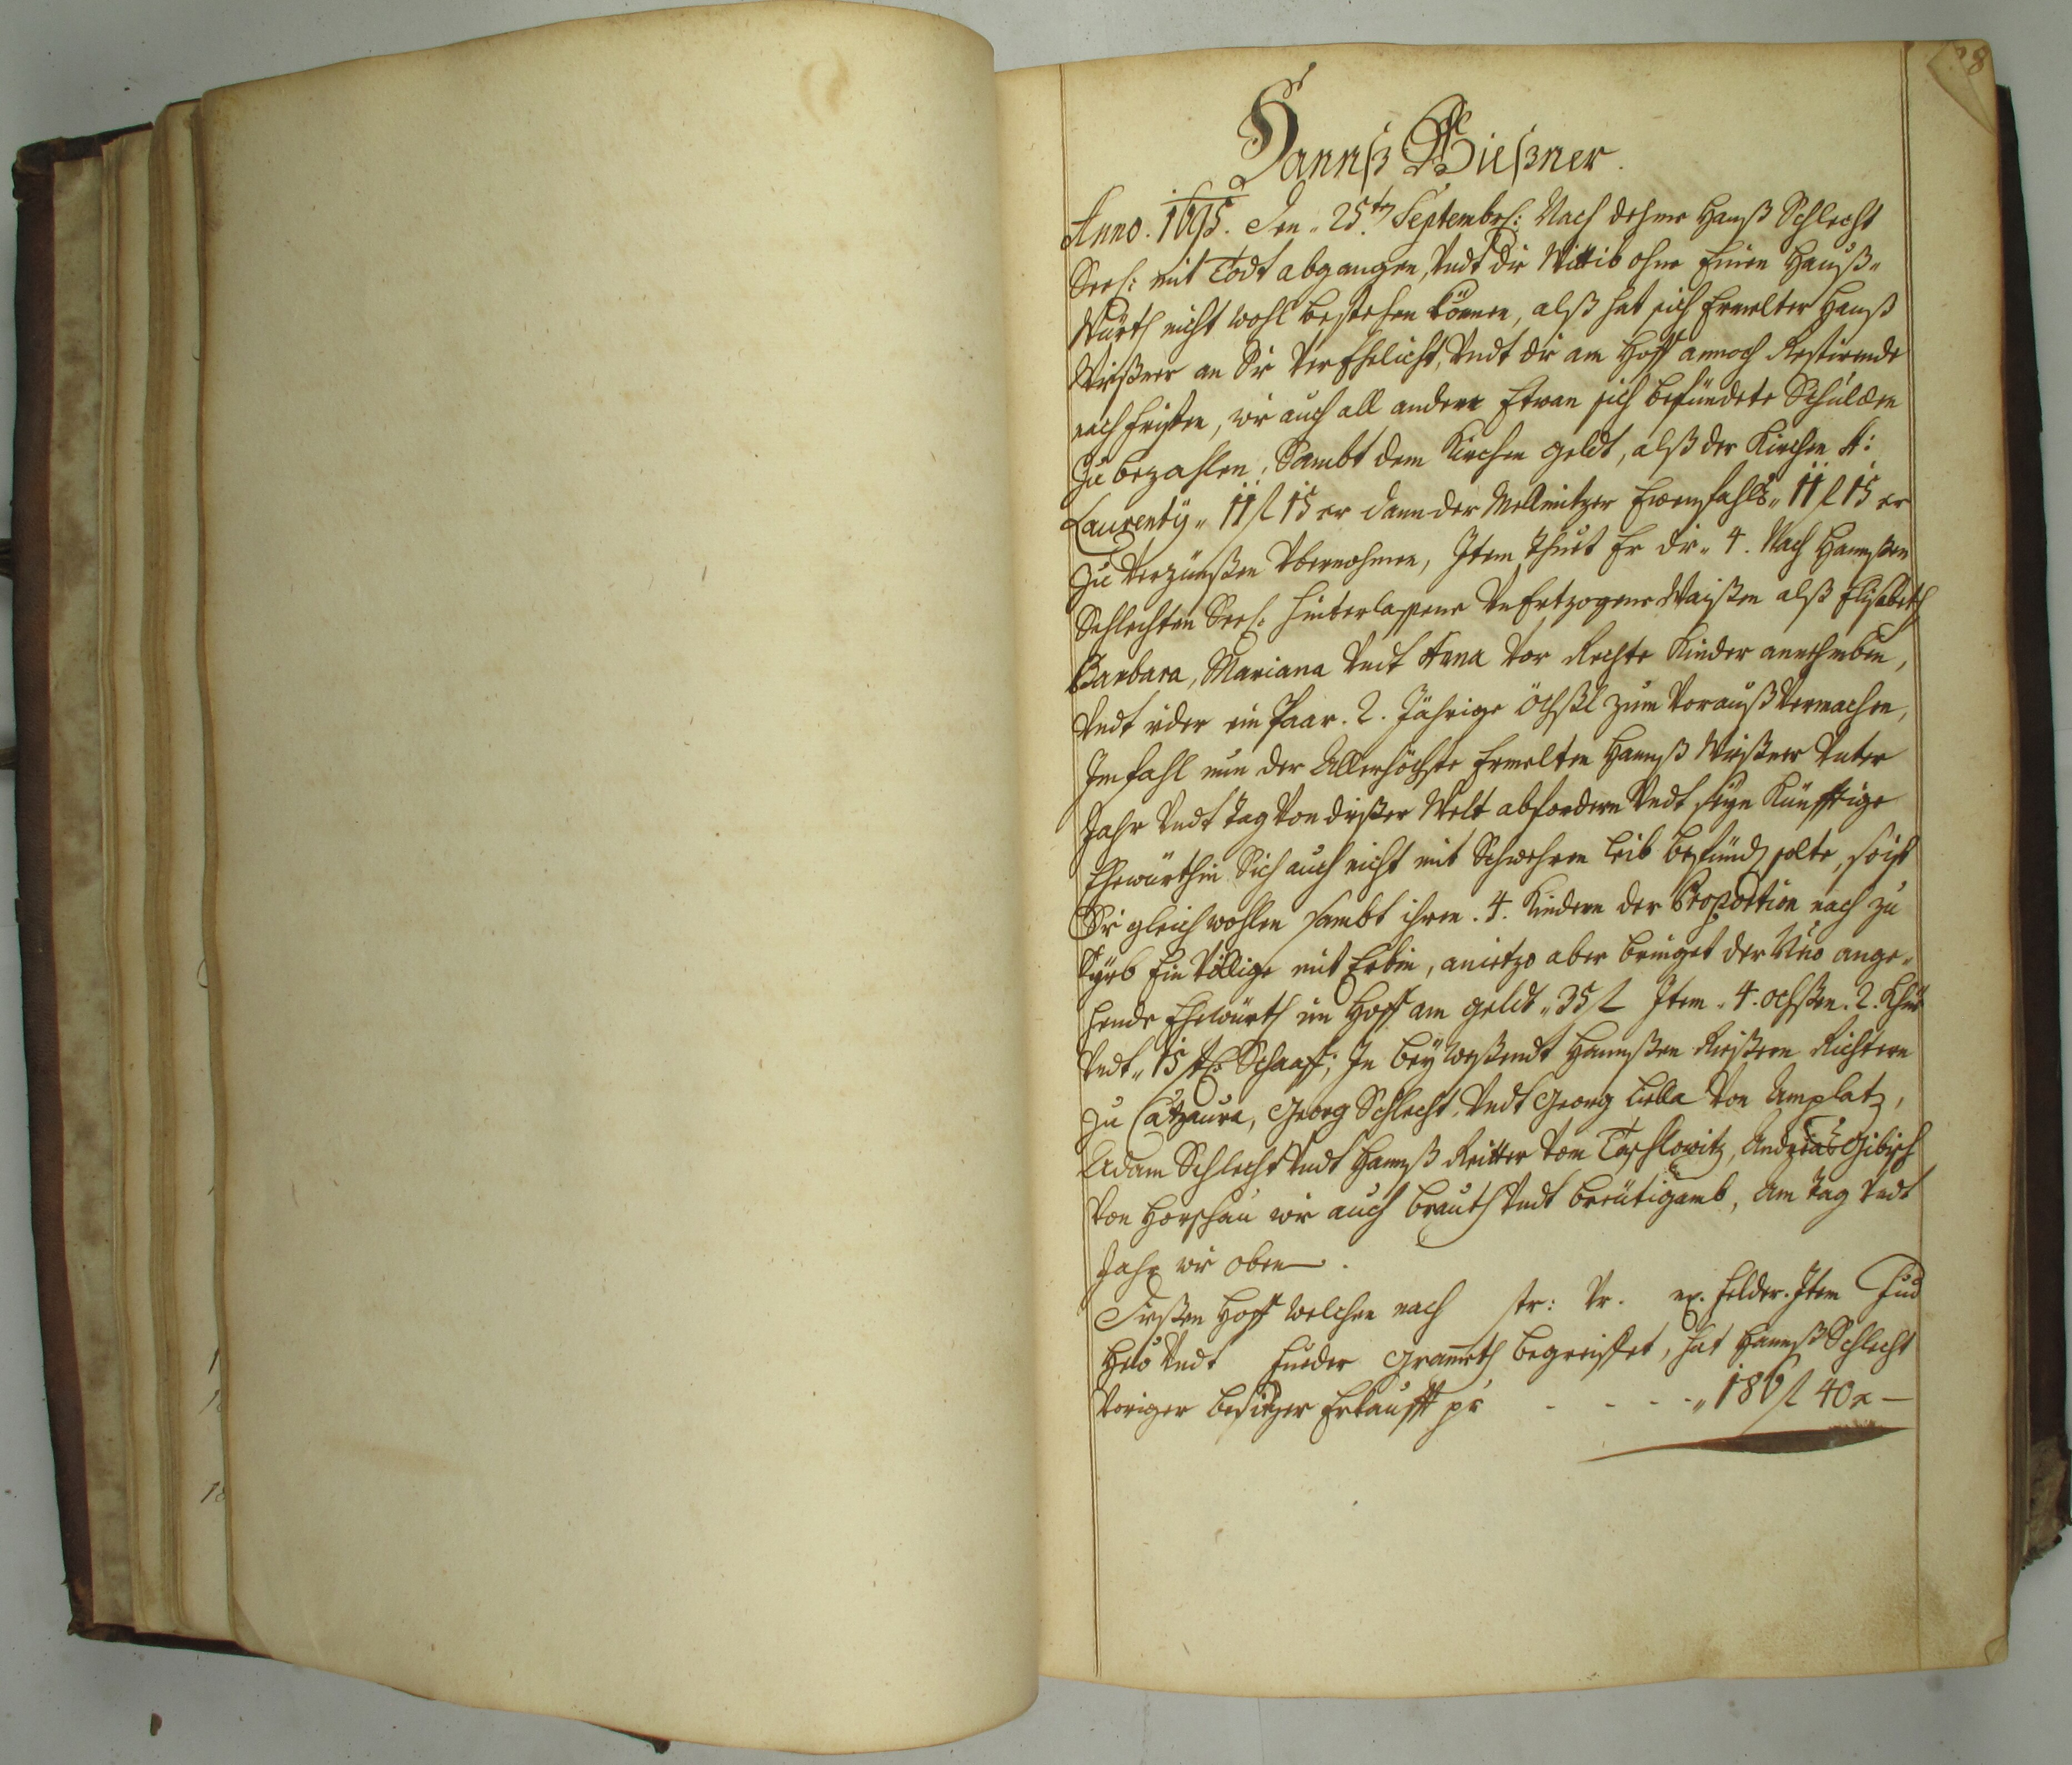 8
Hannß Wießner.
Anno. 1695. Den 25.ten Septembrs: Nach dehme Hanß Schlecht
Seel: mit Todt abgangen, Undt die Wittib ohne Einen Hauß-
Würth nicht wohl bestehen können, alß hat sich Ermelter Hanß
Wießner an Sie VerEhelicht, Undt die am Hoff annoch Restirende
nach fristen, wie auch all andere Etwan sich befündete Schulden
Zu bezahlen, Sambt dem Kirchen geldt, alß der Kirchen St:
Laurenty „ 11 fl 15 xr dann der Mellnitzer Ebenfahls „ 11 fl 15 xr
Zu Verzünßen Übernohmen, Item Thuet Er die „ 4. Nach Hannßen
Schlechten Seel: hinterlaßene UnErtzogene Waißen alß Elisabeth
Barbara, Mariana Undt Anna Vor Rechte Kinder annehmben,
Undt ieder ein Paar. 2. Jährige Öchßl zum Vorauß Vermachen,
Im fahl nun der Allerhöchste Ermelten Hannß Wießner Unter
Jahr Undt Tag Von dießer Welt abfordern Undt seyn Künfftige
Ehewürthin Sich auch nicht mit Schwehren Leib befünd solte, so ist
Sie gleich wohlen sambt ihren. 4. Kindern der Proportion nach zu
Erb Ein Völlige mit Erbin, anietzo aber bringet der Neü ange-
hende Ehewürth im Hoff am geldt „ 35 fl Item „ 4. ochßen. 2. Khüe
Undt „ 15 St: Schaaff; In beyweßendt Hannßen Rießern Richtern
zu Catzaura, Georg Schlecht, Undt Georg Liebla Von Amplatz,
Adam Schlecht Undt Hannß Reitter Von Taschlowitz, Andreas Gibisch
Von Horschau wie auch brauth Undt breütigamb, Am Tag Undt
Jahr wie oben.
Dießen Hoff welchen nach str: Vr. xx. felder. Item Fud
Heü Undt Fueder Grameth begreiffet, hat Hannß Schlecht
Voriger besitzer Erkaufft pr - - - - „ 186 fl 40 x —